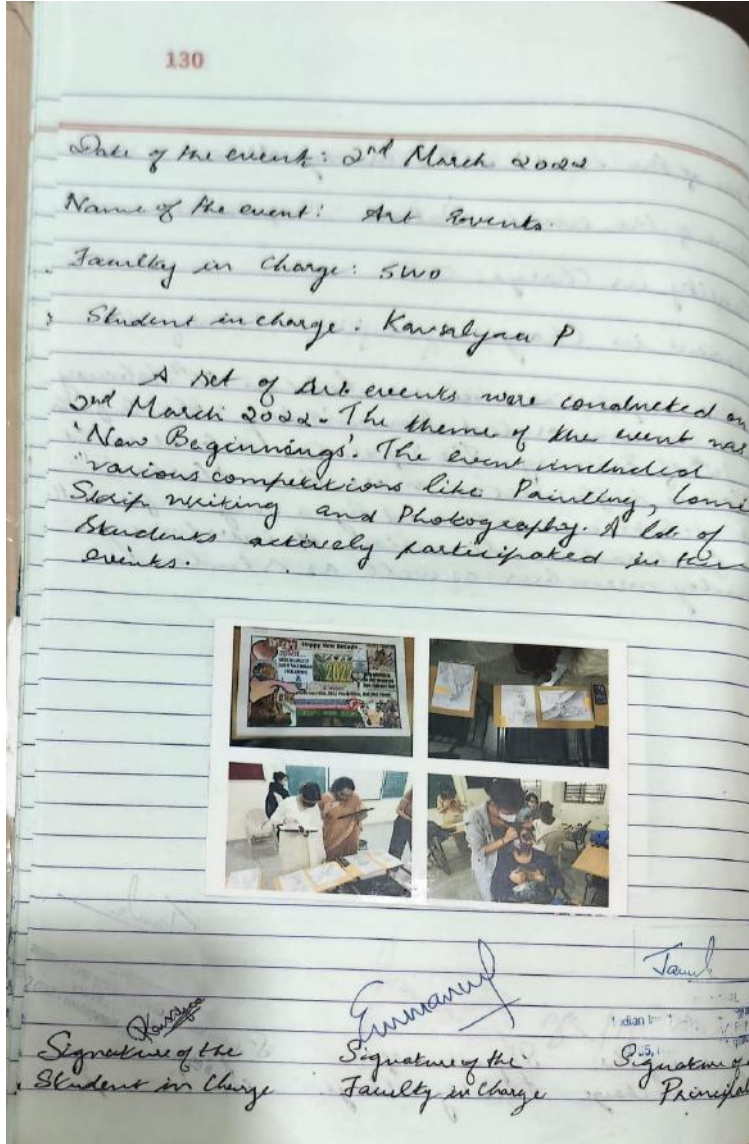 130
Date of the event: 2nd March 2022
Name of the event: Art Events.
Faculty in Charge: SWO
Student in charge: Kausalyaa P
A set of Art events were conducted on
2nd March 2022. The theme of the event was
'New Beginnings'. The event included
various competitions like Painting, Comic
Strip writing and Photography. A lot of
Students actively participated in these
events.
Happy New Decade
2022
Emmanuel
Signature of the
Student in Charge
Signature of the
Faculty in Charge
Signature of
Principal